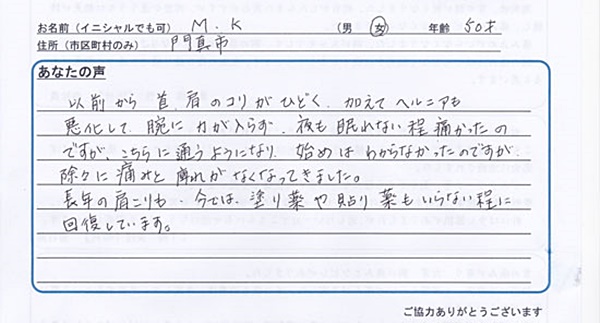 お名前（イニシャルでも可） M.K （男 女） 年齢 50才
住所（市区町村のみ） 門真市
あなたの声
以前から首、肩のコリがひどく、加えてヘルニアも
悪化して、腕に力が入らず、夜も眠れない程痛かったの
ですが、こちらに通うようになり、始めはわからなかったのですが、
除々に痛みと痺れがなくなってきました。
長年の肩こりも 今では、塗り薬や貼り薬もいらない程に
回復しています。
ご協力ありがとうございます